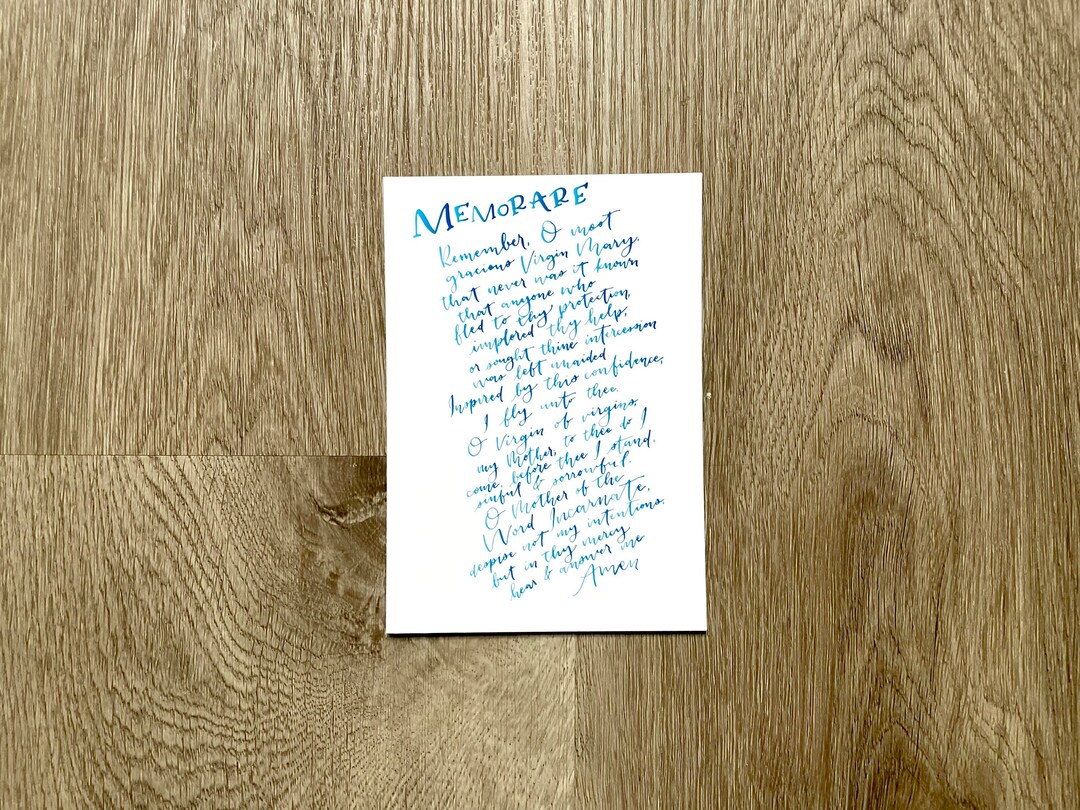 MEMORARE
Remember, O most
gracious Virgin Mary,
that never was it known
that anyone who
fled to thy protection,
implored thy help,
or sought thine intercession
was left unaided
Inspired by this confidence,
I fly unto thee.
O Virgin of virgins,
my Mother, to thee do I
come, before thee I stand,
sinful & sorrowful.
O Mother of the
Word Incarnate,
despise not my intentions,
but in thy mercy
hear & answer me
Amen